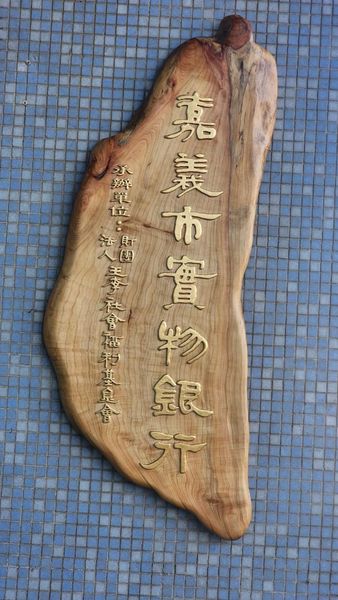 嘉義市實物銀行
承辦單位：財團法人王李社會福利基金會